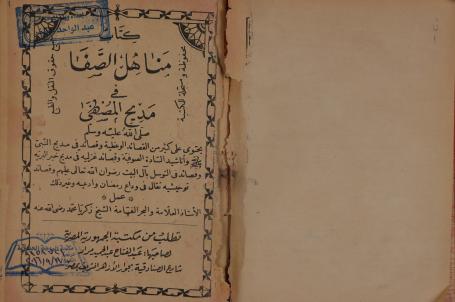 كتاب
مناهل الصفا
في
مديح المصطفى
صلى الله عليه وسلم
يحتوى على كثير من القصائد الوعظية وقصائد فى مديح النبى
وأناشيد السادة الصوفية وقصائد غزلية فى مديح خير البريه
وقصائد فى التوسل بآل البيت رضوان الله تعالى عليهم وقصائد
توحيديه تقال فى وداع رمضان وأدعيه وغير ذلك
عمل
الأستاذ العلامة والبحر الفهامة الشيخ زكريا محمد رضى الله عنه
تطلب من مكتبة الجمهورية المصرية
لصاحبها: عبد الفتاح عبد الحميد مراد
شارع الصنادقية بجوار الأزهر الشريف بمصر
حقوق النقل والطبع
محفوظة ومسجلة للمكتبة
عبد الواحد